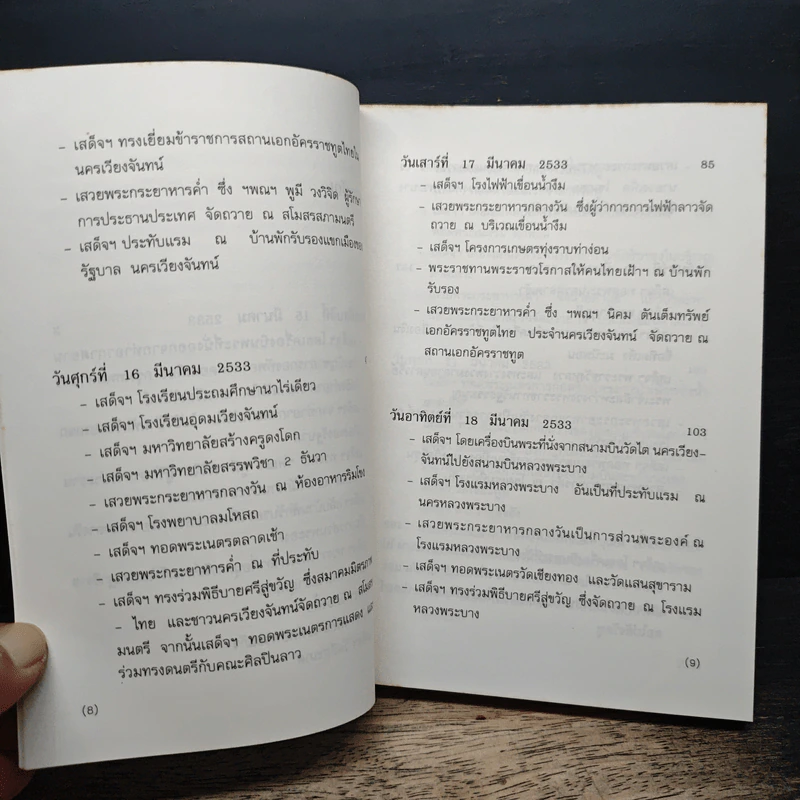 - เสด็จฯ ทรงเยี่ยมข้าราชการสถานเอกอัครราชทูตไทยใน
นครเวียงจันทน์
- เสวยพระกระยาหารค่ำ ซึ่ง ฯพณฯ พูมี วงวิจิด ผู้รักษา
การประธานประเทศ จัดถวาย ณ สโมสรสภามนตรี
- เสด็จฯ ประทับแรม ณ บ้านพักรับรองแขกเมืองของ
รัฐบาล นครเวียงจันทน์
วันศุกร์ที่ 16 มีนาคม 2533
- เสด็จฯ โรงเรียนประถมศึกษานาไร่เดียว
- เสด็จฯ โรงเรียนอุดมเวียงจันทน์
- เสด็จฯ มหาวิทยาลัยสร้างครูดงโดก
- เสด็จฯ มหาวิทยาลัยสรรพวิชา 2 ธันวา
- เสวยพระกระยาหารกลางวัน ณ ห้องอาหารริมโขง
- เสด็จฯ โรงพยาบาลมโหสถ
- เสด็จฯ ทอดพระเนตรตลาดเช้า
- เสวยพระกระยาหารค่ำ ณ ที่ประทับ
- เสด็จฯ ทรงร่วมพิธีบายศรีสู่ขวัญ ซึ่งสมาคมมิตรภาพ
- ไทย และชาวนครเวียงจันทน์จัดถวาย ณ สโมสร
มนตรี จากนั้นเสด็จฯ ทอดพระเนตรการแสดง และ
ร่วมทรงดนตรีกับคณะศิลปินลาว
(8)
วันเสาร์ที่ 17 มีนาคม 2533 85
- เสด็จฯ โรงไฟฟ้าเขื่อนน้ำงึม
- เสวยพระกระยาหารกลางวัน ซึ่งผู้ว่าการการไฟฟ้าลาวจัด
ถวาย ณ บริเวณเขื่อนน้ำงึม
- เสด็จฯ โครงการเกษตรทุ่งราบท่าง่อน
- พระราชทานพระราชวโรกาสให้คนไทยเฝ้าฯ ณ บ้านพัก
รับรอง
- เสวยพระกระยาหารค่ำ ซึ่ง ฯพณฯ นิคม ตันเต็มทรัพย์
เอกอัครราชทูตไทย ประจำนครเวียงจันทน์ จัดถวาย ณ
สถานเอกอัครราชทูต
วันอาทิตย์ที่ 18 มีนาคม 2533 103
- เสด็จฯ โดยเครื่องบินพระที่นั่งจากสนามบินวัดไต นครเวียง-
จันทน์ไปยังสนามบินหลวงพระบาง
- เสด็จฯ โรงแรมหลวงพระบาง อันเป็นที่ประทับแรม ณ
นครหลวงพระบาง
- เสวยพระกระยาหารกลางวันเป็นการส่วนพระองค์ ณ
โรงแรมหลวงพระบาง
- เสด็จฯ ทอดพระเนตรวัดเชียงทอง และวัดแสนสุขาราม
- เสด็จฯ ทรงร่วมพิธีบายศรีสู่ขวัญ ซึ่งจัดถวาย ณ โรงแรม
หลวงพระบาง
(9)